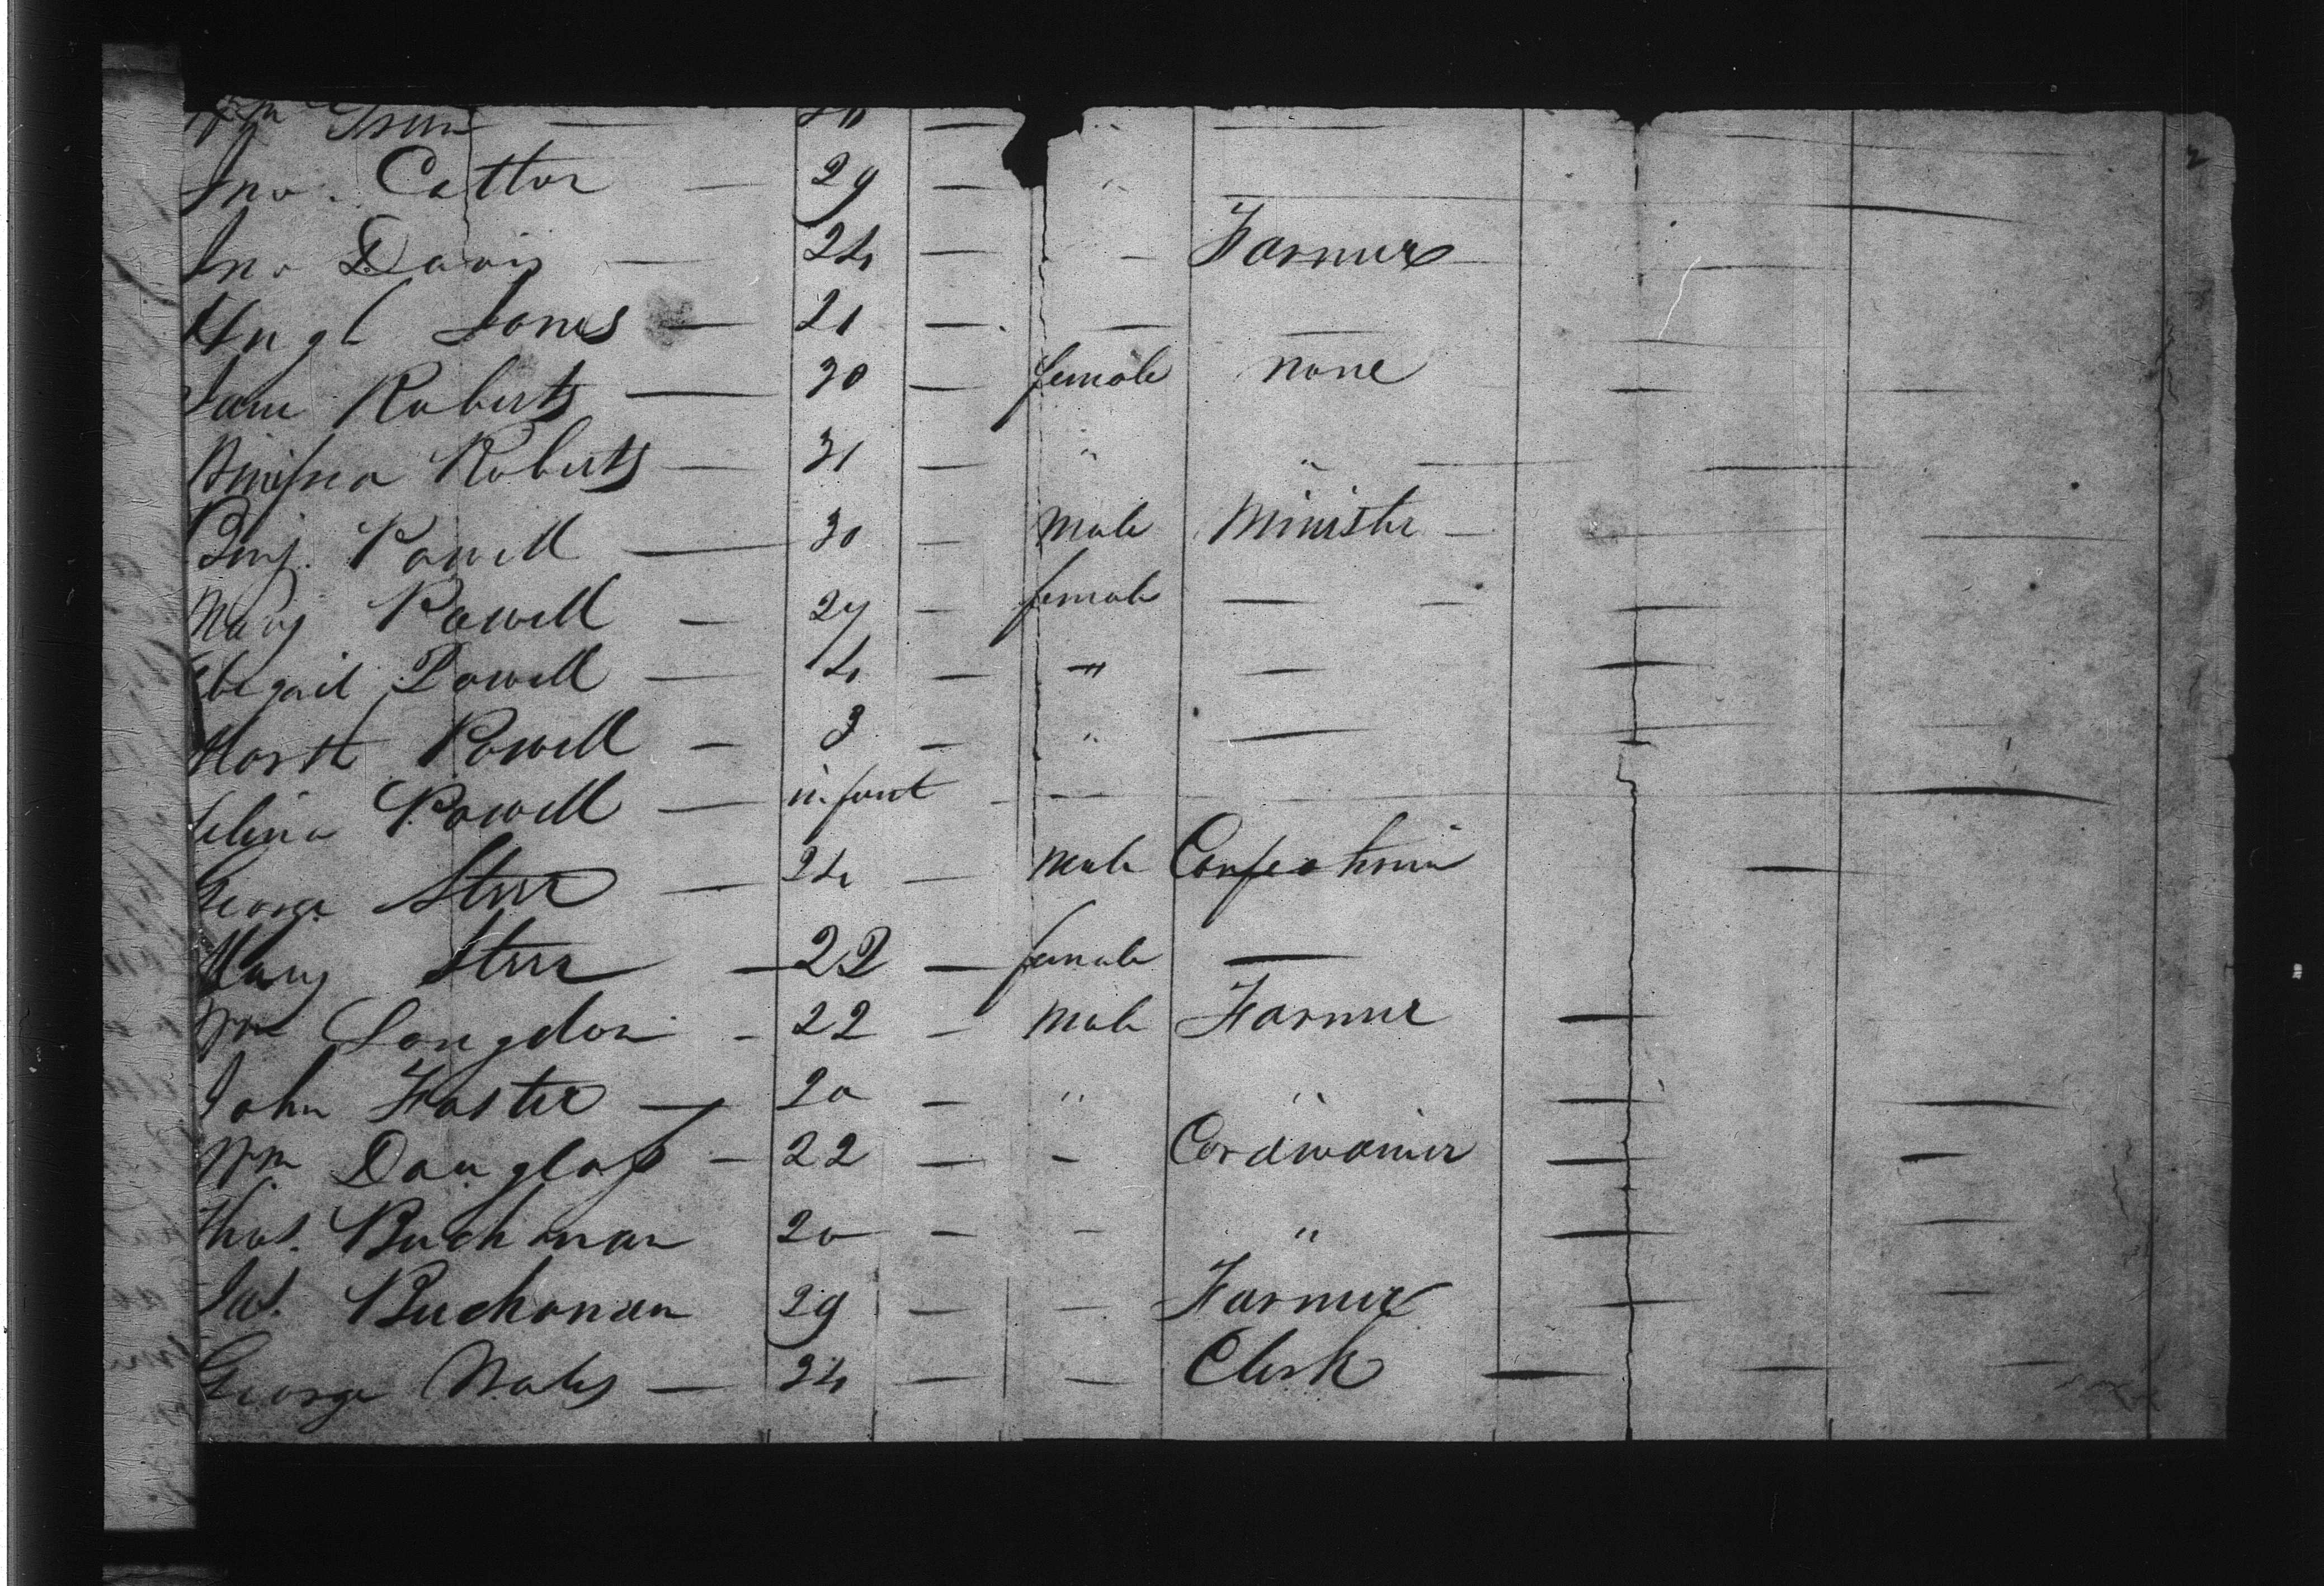 Wm
Jno. Cattor — 29 — "
Jno Davis — 24 — - Farmer
Hugh Jones — 21 — — —
Jane Roberts — 30 — female none
Roberts — 31 — " "
Benj. Powell — 30 — Male Minister
Mary Powell — 27 — female —
Abegail Powell — 4 — " —
Marth Powell — 3 — " —
Selina Powell — infant — —
George Sterr — 24 — Male Confectioner
Mary Sterr — 22 — female —
Wm Longdon - 22 — Male Farmer —
John Foster — 20 — " " —
Wm Douglass — 22 — - Cordwainer —
Thos. Buchman 20 — - " —
Jas. Buchanan 29 — — Farmer —
George — 24 — — Clerk —